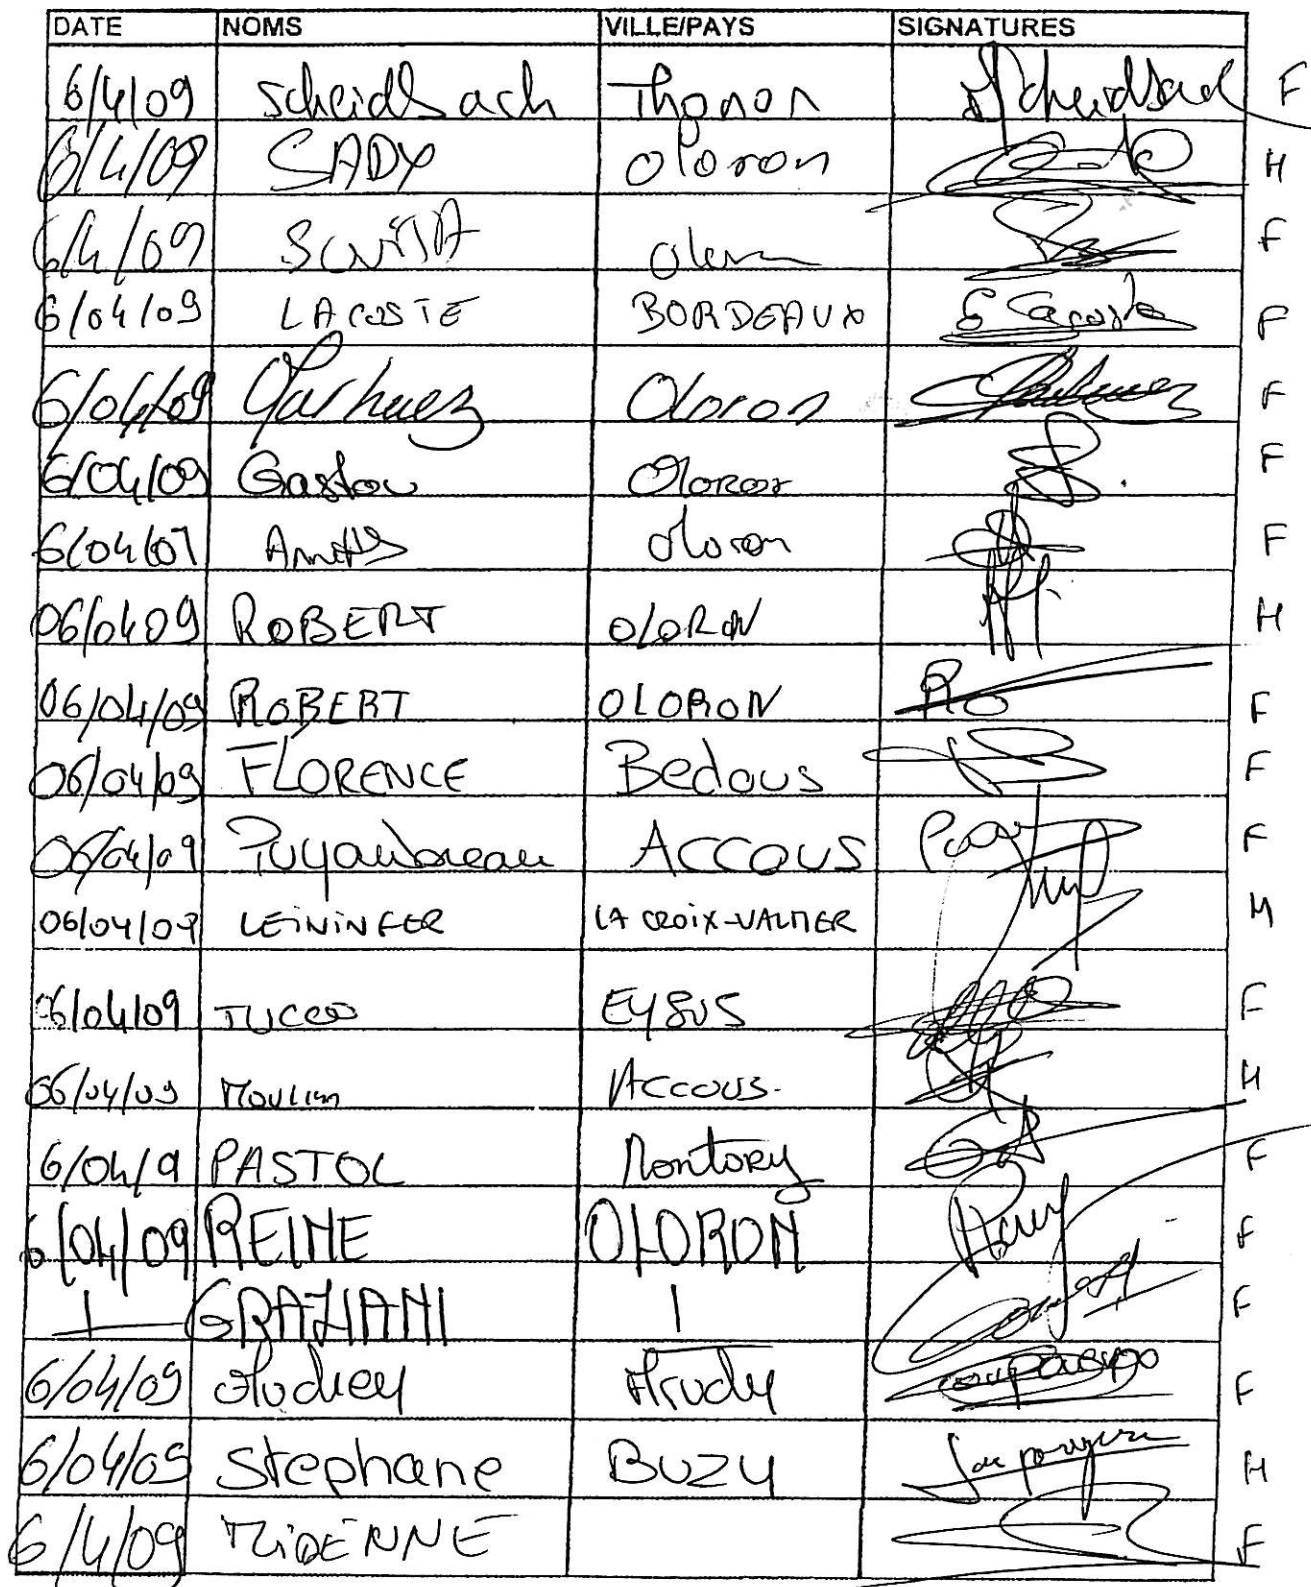 DATE NOMS VILLE/PAYS SIGNATURES
6/4/09 Scheidbach Thonon Scheidbach F
6/4/09 SADY Oloron H
6/4/09 F
6/04/09 LACOSTE BORDEAUX E Lacoste F
6/04/09 Oloron F
6/04/09 Gaston Oloron F
6/04/09 Oloron F
06/04/09 ROBERT OLORON H
06/04/09 ROBERT OLORON Ro F
06/04/09 FLORENCE Bedous F
06/04/09 Puyaubreau ACCOUS F
06/04/09 LEININGER LA CROIX-VALMER H
06/04/09 TUCCO EYSUS F
06/04/09 Moulin ACCOUS. H
6/04/9 PASTOL Montory F
6/04/09 REINE OLORON F
GRAZIANI F
6/04/09 Arudy F
6/04/09 Stephane Buzy H
6/4/09 F